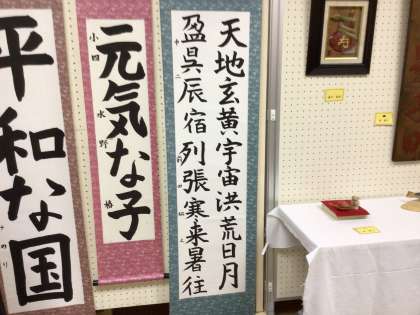 天地玄黄宇宙洪荒日月
盈昃辰宿列張寒来暑往
元気な子
小四
水野
平和な国